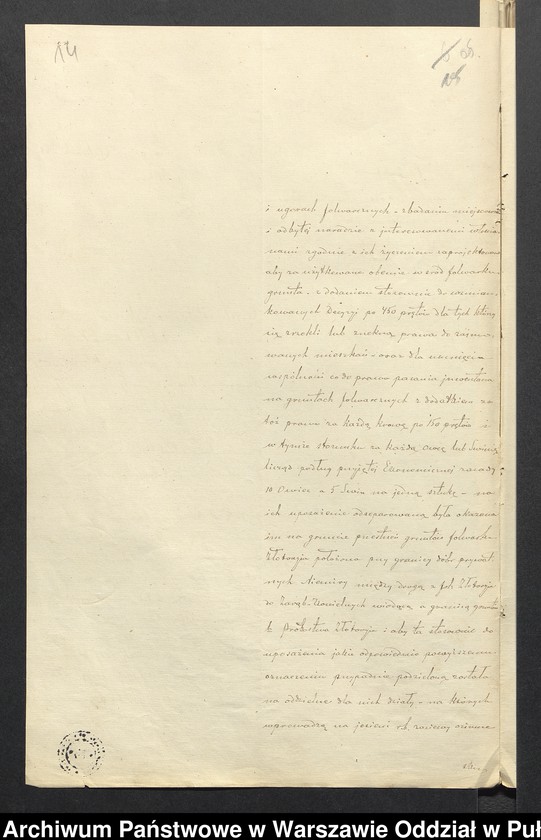 14
25
i ugorach folwarcznych – zbadaniu miejscowem
i odbytej naradzie z interesowanemi włościa-
nami zgodnie z ich życzeniem zaprojektowano
aby za użytkowane obecnie w ród folwarku
grunta – z dodaniem stosownie do wzmian-
kowanych Decyzyi po 450 prętów dla tych którzy
się zrzekli lub zrzekną prawa do zajmo-
wanych mieszkań – oraz dla usunięcia
wspólności co do prawa pasania inwentarza
na gruntach folwarcznych z dodatkiem za
toż prawo za każdą krowę po 150 prętów i
w tymże stosunku za każdą owcę lub świnię
licząc podług przyjętej Ekonomicznej zasady
10 Owiec a 5 Świń na jedną sztukę – na
ich uposażenie odseparowaną była
na gruncie gruntów folwark
Złotorja położona przy granicy dóbr prywat-
nych Niemiry między drogą z fol. Złotorja
do Zarąb wiodącą a granicą grun
t. Probostwa Złotorja i aby ta stosownie do
uposażenia jakie odpowiednio powyższemu
oznaczeniu przypadnie podzieloną została
na oddzielne dla nich działy – na których
wprowadzą na jesieni rb. zasiewy ozime
Archiwum Państwowe w Warszawie Oddział w Puł